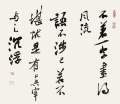 不著一字盡得
風流
語不涉己若不
堪憂是有真宰
與之沉浮